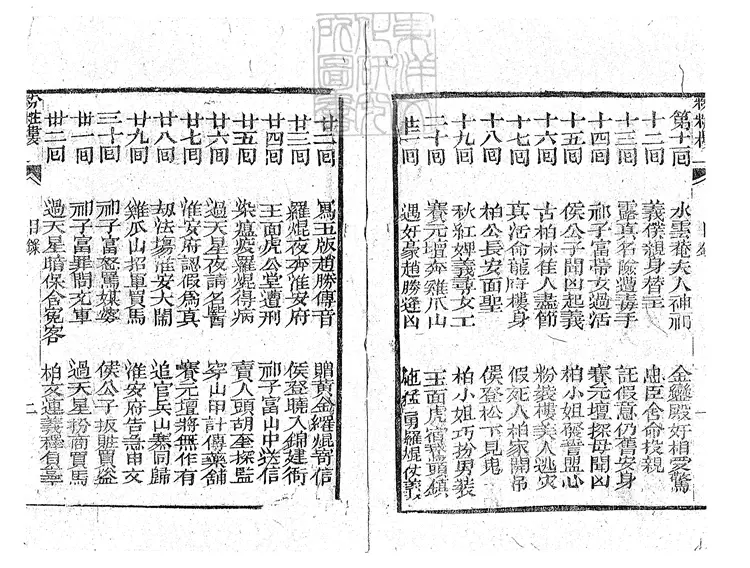 粉粧樓
目錄
一
第十一回 水雲菴夫人神祠 金鑾殿奸相受驚
十二回 義僕親身替主 忠臣舍命投親
十三回 露真名險遭毒手 託假意仍舊安身
十四回 祁子富帶女過活 賽元壇探母聞凶
十五回 侯公子聞凶起義 柏小姐發誓盟心
十六回 古柏林佳人盡節 粉粧樓美人逃災
十七回 真活命龍府棲身 假死人柏家開吊
十八回 柏公長安面聖 侯登松下見鬼
十九回 秋紅婢義尋女工 柏小姐巧扮男裝
二十回 賽元壇奔雞爪山 玉面虎宿鵞頭鎮
廿一回 遇奸豪趙勝逢凶 施猛勇羅焜仗義
廿二回 寫玉版趙勝傳音 贈黃金羅焜寄信
廿三回 羅焜夜奔淮安府 侯登曉入錦建衙
廿四回 玉面虎公堂遭刑 祁子富山中送信
廿五回 染瘟疫羅焜得病 賣人頭胡奎探監
廿六回 過天星夜請名醫 穿山甲計傳藥舖
廿七回 淮安府認假為真 賽元壇將無作有
廿八回 刼法塲淮安大鬧 追官兵山寨同歸
廿九回 雞爪山招軍買馬 淮安府告急申文
三十回 祁子富怒罵媒婆 侯公子扳賍買盜
卅一回 祁子富罪問充軍 過天星扮商買馬
卅二回 過天星暗保含冤客 柏文連義釋負辜
粉粧樓
目錄
二